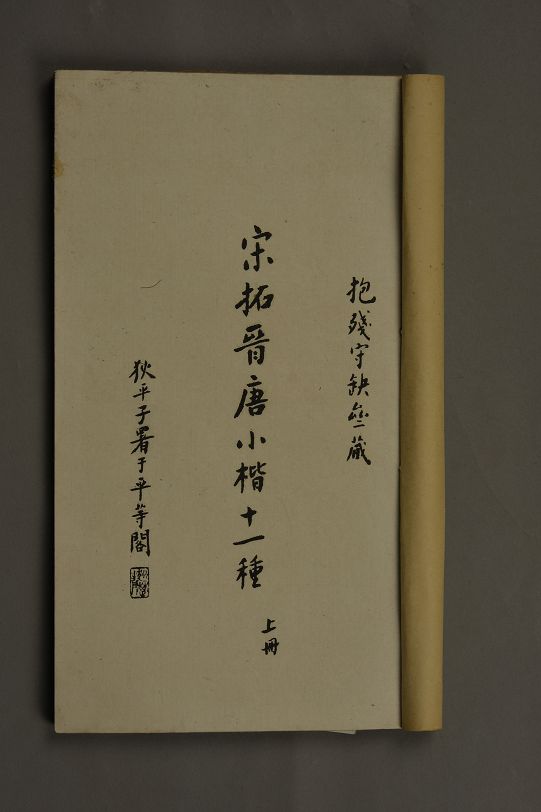 抱殘守缺𠫤藏
宋拓晉唐小楷十一種
上冊
狄平子署于平等閣